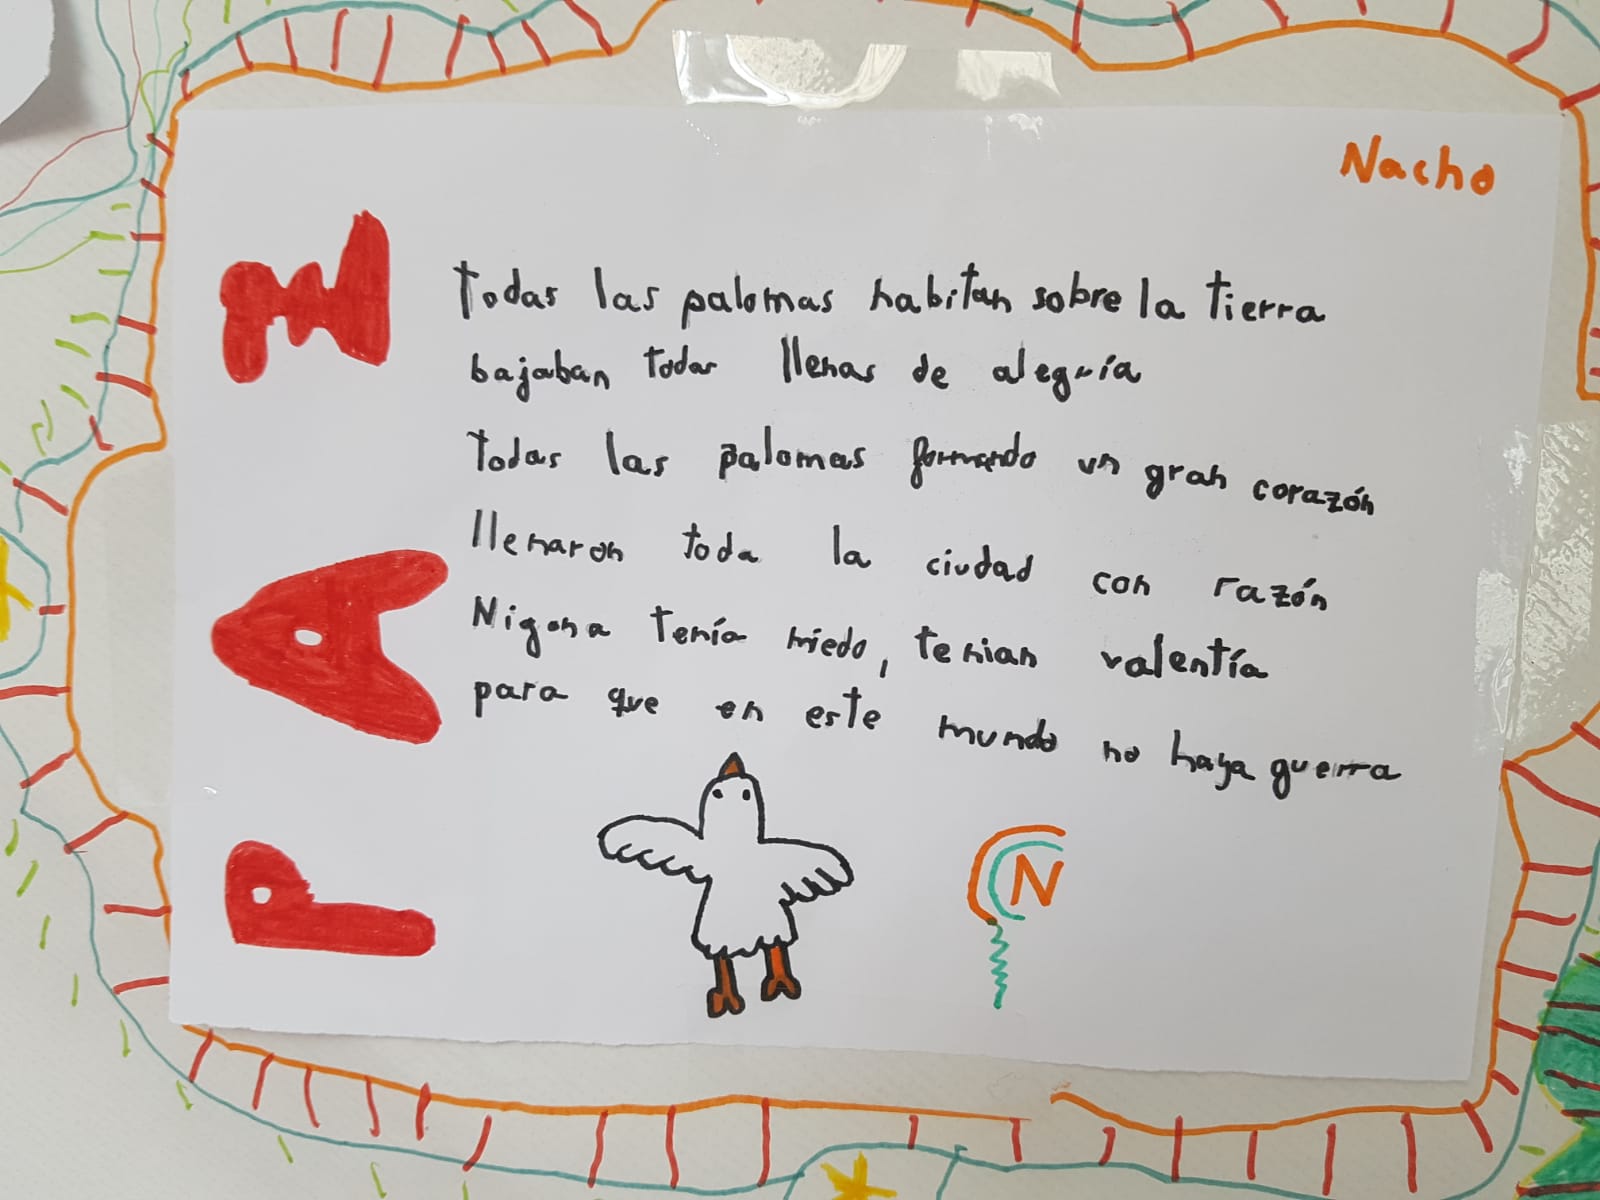 Nacho
PAZ
Todas las palomas habitan sobre la tierra
bajaban todas llenas de alegría
todas las palomas formando un gran corazón
llenaron toda la ciudad con razón
Nigona tenía miedo, tenian valentía
para que en este mundo no haya guerra
N